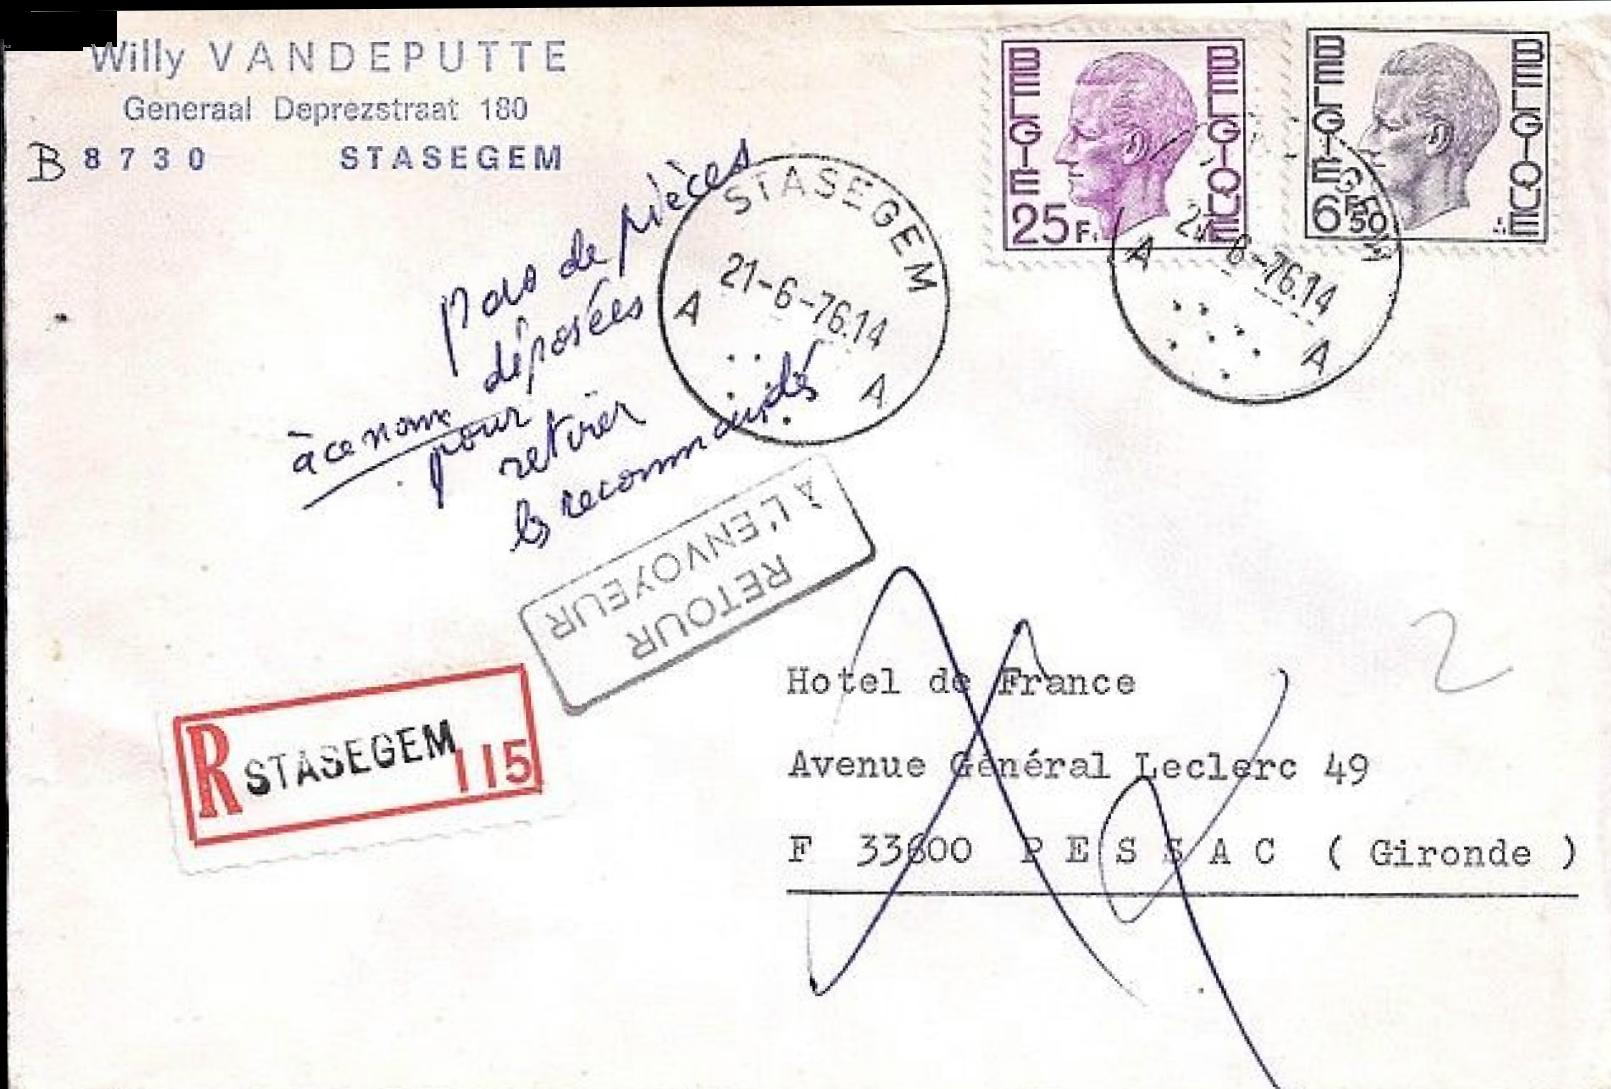 Willy VANDEPUTTE
Generaal Deprezstraat 180
B 8730 STASEGEM
BELGIE BELGIQUE
25F
BELGIE BELGIQUE
6F50
STASEGEM
21-6-76.14
A A
STASEGEM
21-6-76.14
A A
pas de pièces
déposées
à ce nom
pour
retirer
les recommandés
RETOUR
À L'ENVOYEUR
R STASEGEM 115
2
Hotel de France
Avenue Général Leclerc 49
F 33600 PESSAC ( Gironde )